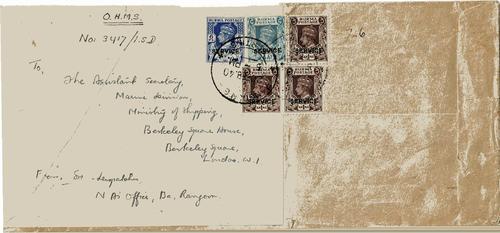 O.H.M.S.
No: 3417/I.S.D
BURMA POSTAGE
SERVICE
BURMA POSTAGE
SERVICE
BURMA POSTAGE
SERVICE
SERVICE
SERVICE
To,
The Assistant Secretary
Marine
Ministry of Shipping,
Berkeley Square House,
Berkeley Square,
London. W.1
From,
Office, Rangoon.